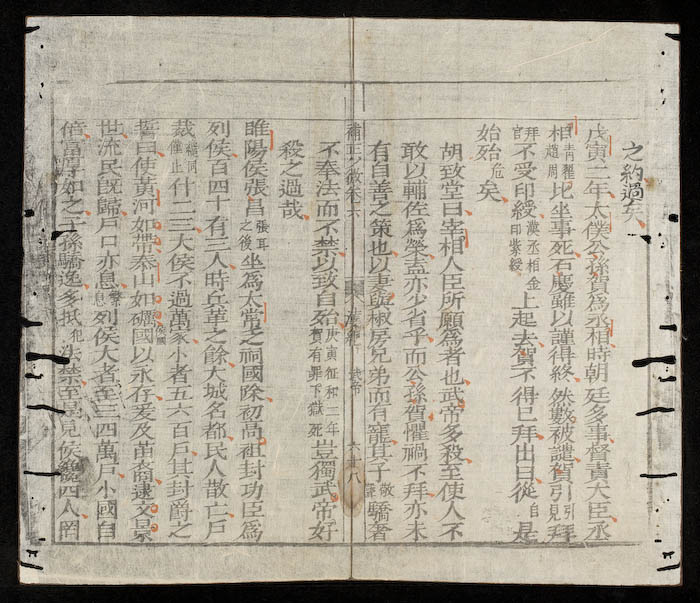 之約過矣
戊寅二年太僕公孫賀爲丞相時朝廷多事督責大臣丞
相靑翟趙周比坐事死石慶雖以謹得終然數被譴賀引引見拜
拜官不受印綬漢丞相金印紫綬上起去賀不得已拜出曰從自是
始殆危矣
胡致堂曰宰相人臣所願爲者也武帝多殺至使人不
敢以輔佐爲榮盖亦少省乎而公孫賀懼禍不拜亦未
有自善之策也以妻與椒房兄弟而有寵其子敬聲驕奢
補正少微卷六 漢紀 武帝 六十八
不奉法而不禁以致自殆庚寅征和二年賀有罪下獄死豈獨武帝好
殺之過哉
睢陽侯張昌張耳之後坐爲太常乏祠國除初高祖封功臣爲
列侯百四十有三人時兵革之餘大城名都民人散亡戶
裁纔同僅止什二三大侯不過萬家小者五六百戶其封爵之
誓曰使黃河如帶泰山如礪國以永存爰及苗裔逮文景
世流民旣歸戶口亦息列侯大者至三四萬戶小國自
倍富厚如之子孫驕逸多抵犯法禁至是見侯纔四人罔